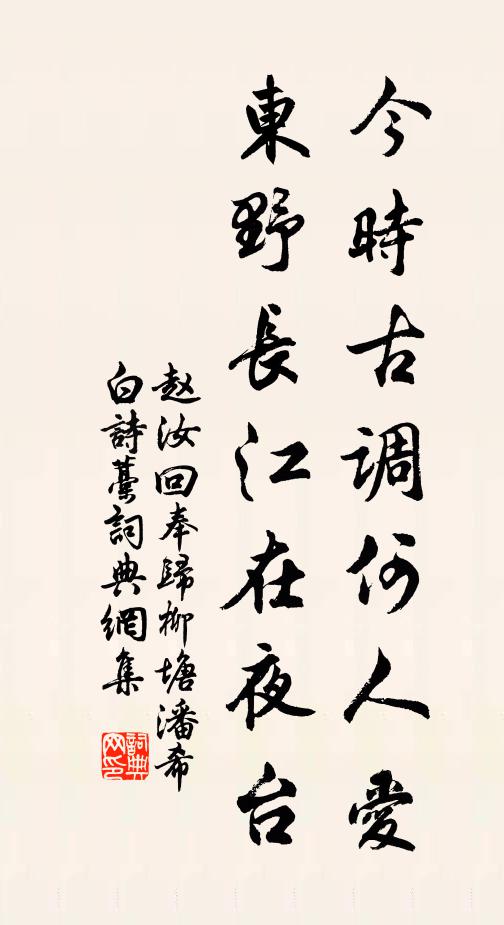 今時古調何人愛
東野長江在夜台
赵汝回奉歸柳塘潘希
白詩藁詞典網集
詞典网印